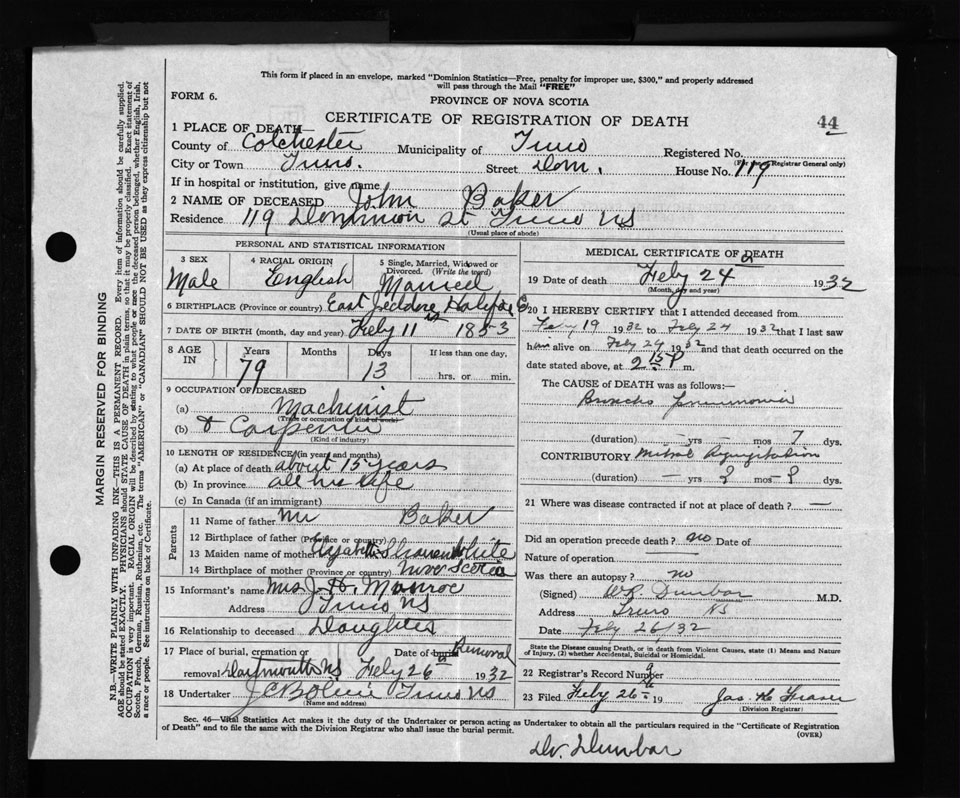 This form if placed in an envelope, marked "Dominion Statistics—Free, penalty for improper use, $300," and properly addressed
will pass through the Mail "FREE"
FORM 6.
PROVINCE OF NOVA SCOTIA
CERTIFICATE OF REGISTRATION OF DEATH
44
1 PLACE OF DEATH—
County of Colchester Municipality of Truro Registered No.
(For use of Registrar General only)
City or Town Truro. Street Dom. House No. 119
If in hospital or institution, give name
2 NAME OF DECEASED John Baker
Residence 119 Dominion St Truro NS
(Usual place of abode)
PERSONAL AND STATISTICAL INFORMATION
3 SEX Male
4 RACIAL ORIGIN English
5 Single, Married, Widowed or Divorced. (Write the word) Married
6 BIRTHPLACE (Province or country) East Jeddore Halifax Co
7 DATE OF BIRTH (month, day and year) Feby 11th 1853
8 AGE IN Years 79 Months Days 13 If less than one day, hrs. or min.
9 OCCUPATION OF DECEASED
(a) Machinist
(Trade or occupation or kind of work)
(b) & Carpenter
(Kind of industry)
10 LENGTH OF RESIDENCE (in years and months)
(a) At place of death about 15 years
(b) In province all his life
(c) In Canada (if an immigrant)
Parents
11 Name of father Mr Baker
12 Birthplace of father (Province or country)
13 Maiden name of mother Elizabeth White
14 Birthplace of mother (Province or country) Nova Scotia
15 Informant's name Mrs J. H. Monroe
Address Truro NS
16 Relationship to deceased Daughter
17 Place of burial, cremation or removal Dartmouth NS Date of burial Removal Feby 26th 1932
18 Undertaker Truro NS
(Name and address)
MEDICAL CERTIFICATE OF DEATH
19 Date of death Feby 24 1932
(Month, day and year)
20 I HEREBY CERTIFY that I attended deceased from
Feby 19 1932 to Feby 24 1932 that I last saw
him alive on Feby 24 1932 and that death occurred on the
date stated above, at P m.
The CAUSE OF DEATH was as follows:—
Broncho Pneumonia
(duration) — yrs — mos 7 dys.
CONTRIBUTORY Mitral Regurgitation
(duration) — yrs ? mos — ? dys.
21 Where was disease contracted if not at place of death? —
Did an operation precede death? no Date of
Nature of operation
Was there an autopsy? no
(Signed) W.R. Dunbar M.D.
Address Truro NS
Date Feby 26/32
State the Disease causing Death, or in death from Violent Causes, state (1) Means and Nature of Injury, (2) whether Accidental, Suicidal or Homicidal.
22 Registrar's Record Number
23 Filed Feby 26th 19 Jas. H. Fraser
(Division Registrar)
Sec. 46—Vital Statistics Act makes it the duty of the Undertaker or person acting as Undertaker to obtain all the particulars required in the "Certificate of Registration
of Death" and to file the same with the Division Registrar who shall issue the burial permit.
(OVER)
Dr. Dunbar
MARGIN RESERVED FOR BINDING
N.B.—WRITE PLAINLY WITH UNFADING INK—THIS IS A PERMANENT RECORD. Every item of information should be carefully supplied.
AGE should be stated EXACTLY. PHYSICIANS should STATE CAUSE OF DEATH in plain terms, so that it may be properly classified. Exact statement of
OCCUPATION is very important. RACIAL ORIGIN will be described by stating to what people or race the deceased person belonged, whether English, Irish,
Scotch, French, German, Russian, Ruthenian, etc. The terms "AMERICAN" or "CANADIAN" SHOULD NOT BE USED as they express citizenship but not
a race or people. See instructions on back of Certificate.